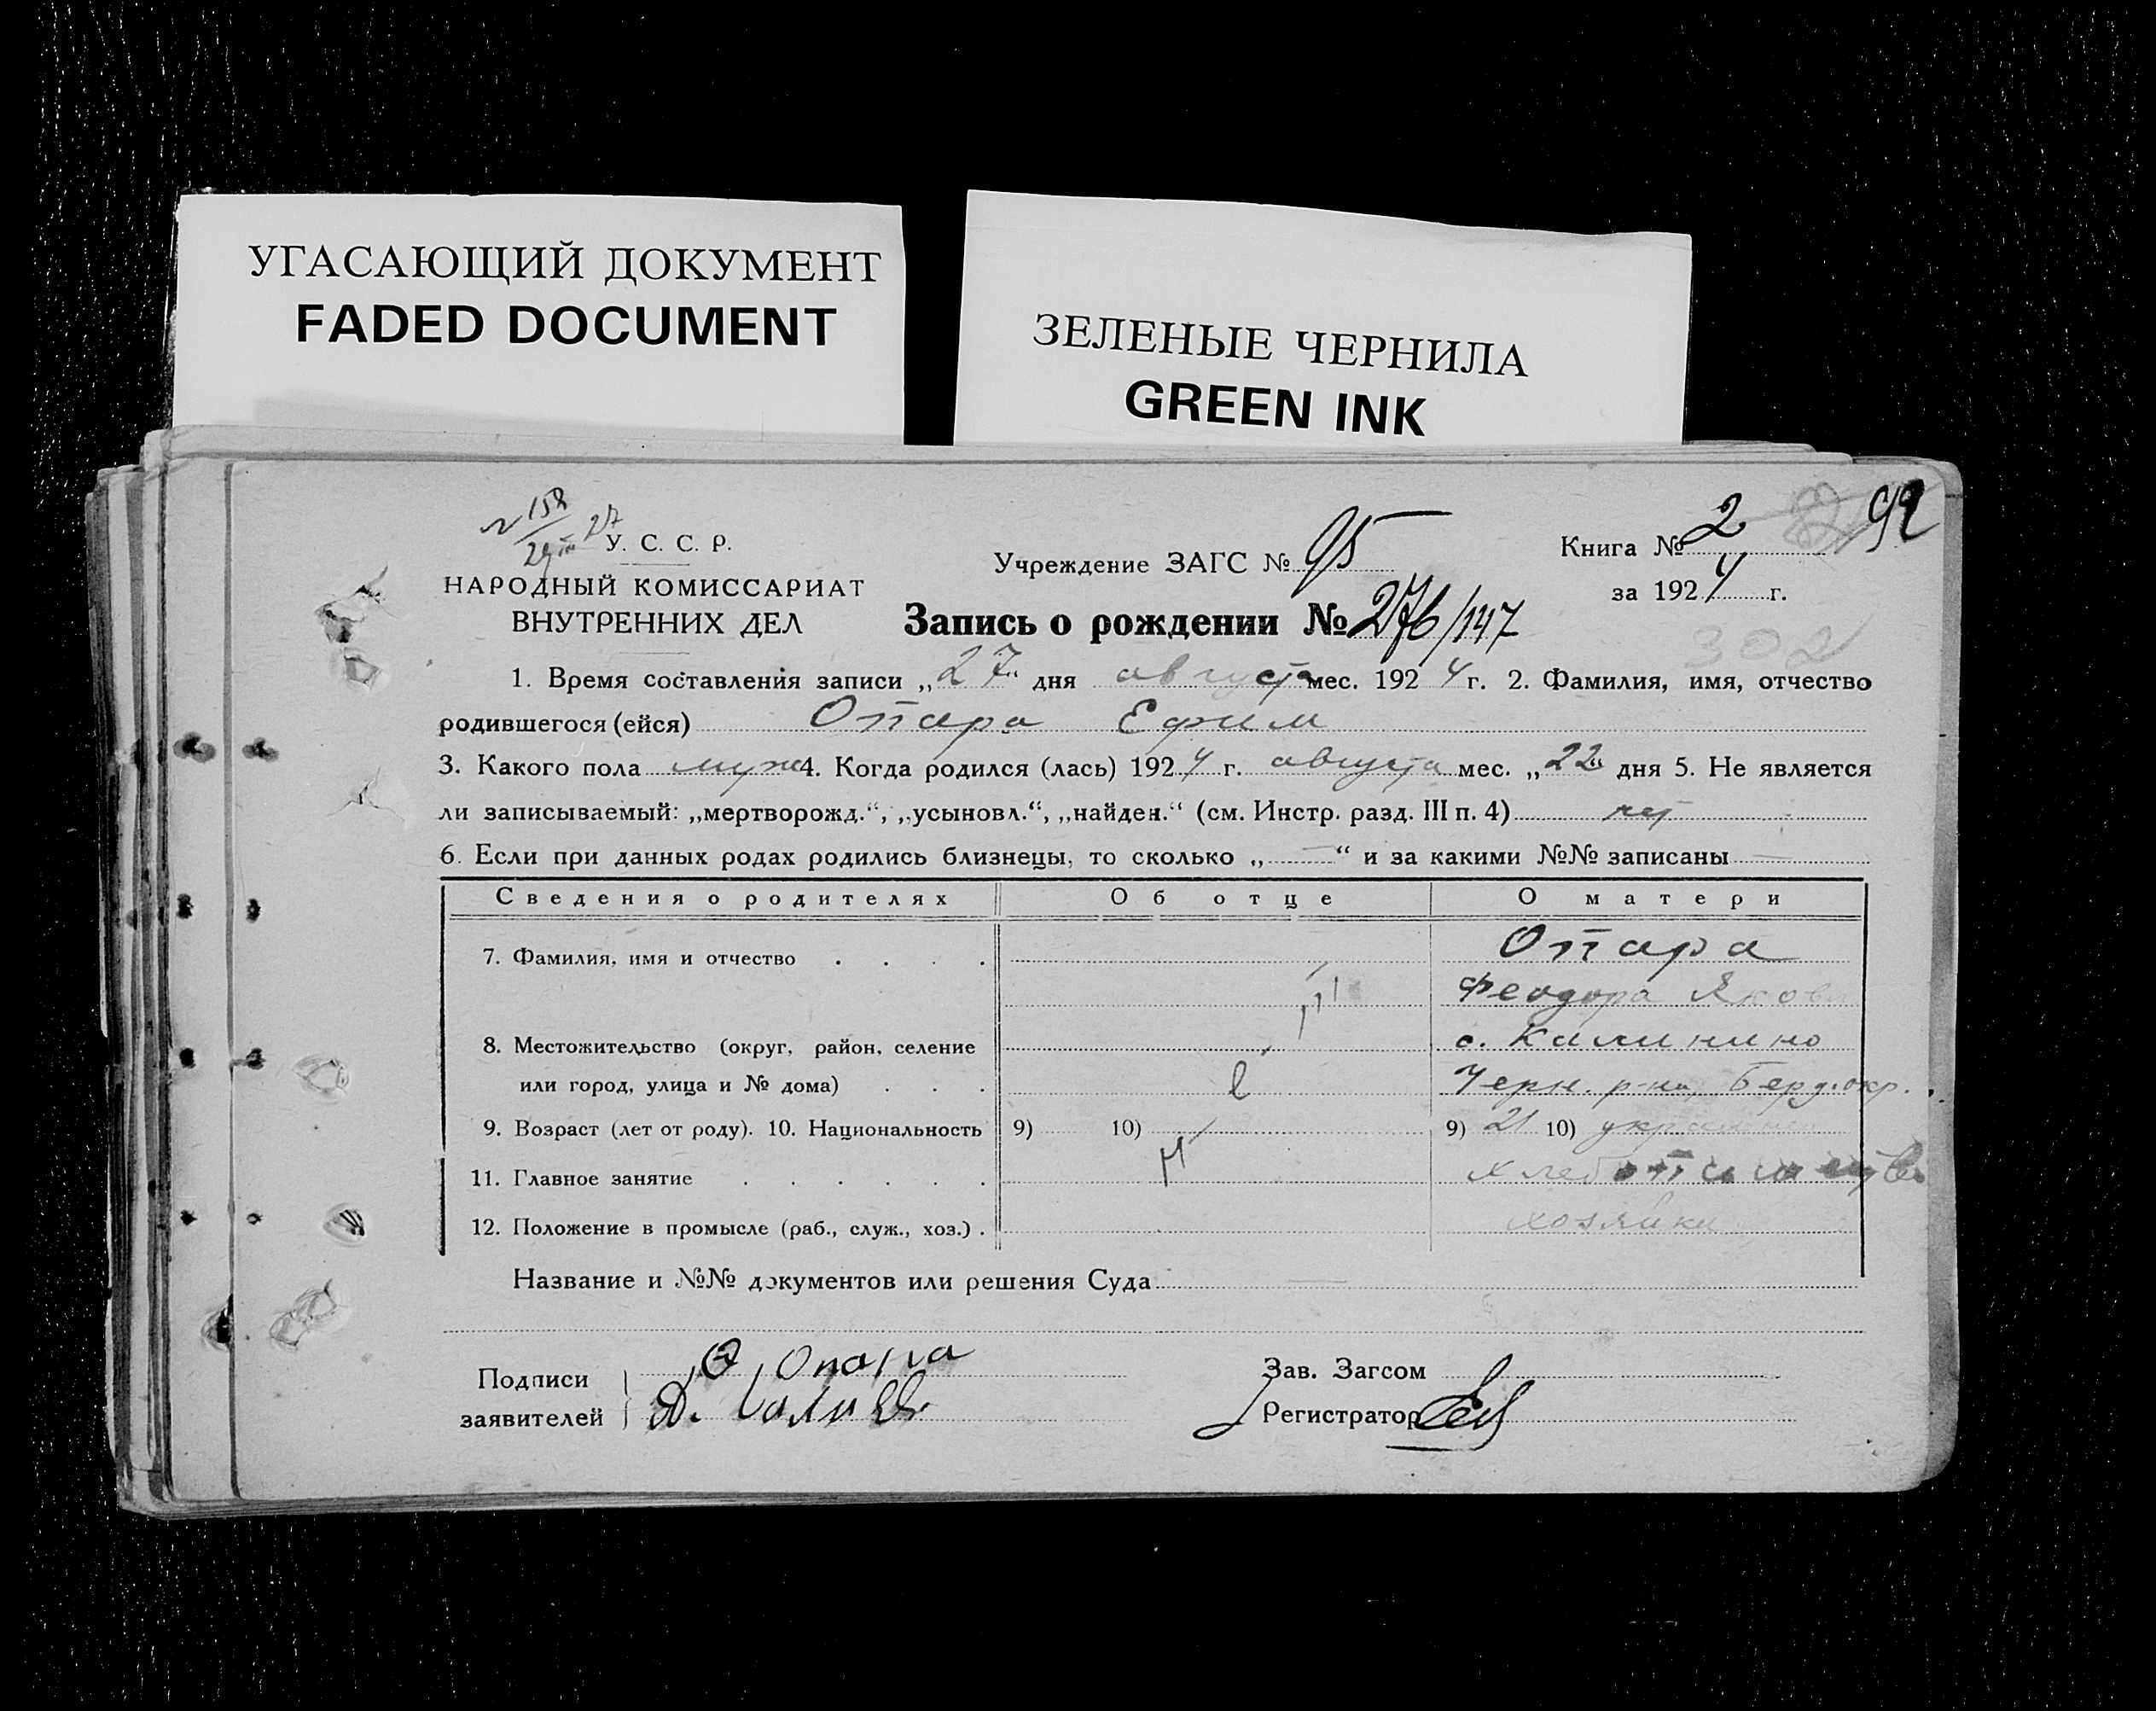 УГАСАЮЩИЙ ДОКУМЕНТ
FADED DOCUMENT
ЗЕЛЕНЫЕ ЧЕРНИЛА
GREEN INK
У. С. С. Р.
НАРОДНЫЙ КОМИССАРИАТ
ВНУТРЕННИХ ДЕЛ
Учреждение ЗАГС № 95
Книга № 2 92
за 1924 г.
Запись о рождении № 276/147
302
1. Время составления записи „27“ дня августа мес. 1924 г. 2. Фамилия, имя, отчество
родившегося (ейся) Опара Ефим
3. Какого пола муж 4. Когда родился (лась) 1924 г. августа мес. „22“ дня 5. Не является
ли записываемый: „мертворожд.“, „усыновл.“, „найден.“ (см. Инстр. разд. III п. 4) нет
6. Если при данных родах родились близнецы, то сколько „—“ и за какими №№ записаны —
Сведения о родителях Об отце О матери
7. Фамилия, имя и отчество . . . . Опара
Феодора Яковл
8. Местожительство (округ, район, селение с. Калинино
или город, улица и № дома) . . . Черн. р-на, Берд. окр.
9. Возраст (лет от роду). 10. Национальность 9) 10) 9) 21 10) украин
11. Главное занятие . . . . . .
12. Положение в промысле (раб., служ., хоз.) . хозяйка
Название и №№ документов или решения Суда —
Подписи Опара
заявителей
Зав. Загсом
Регистратор